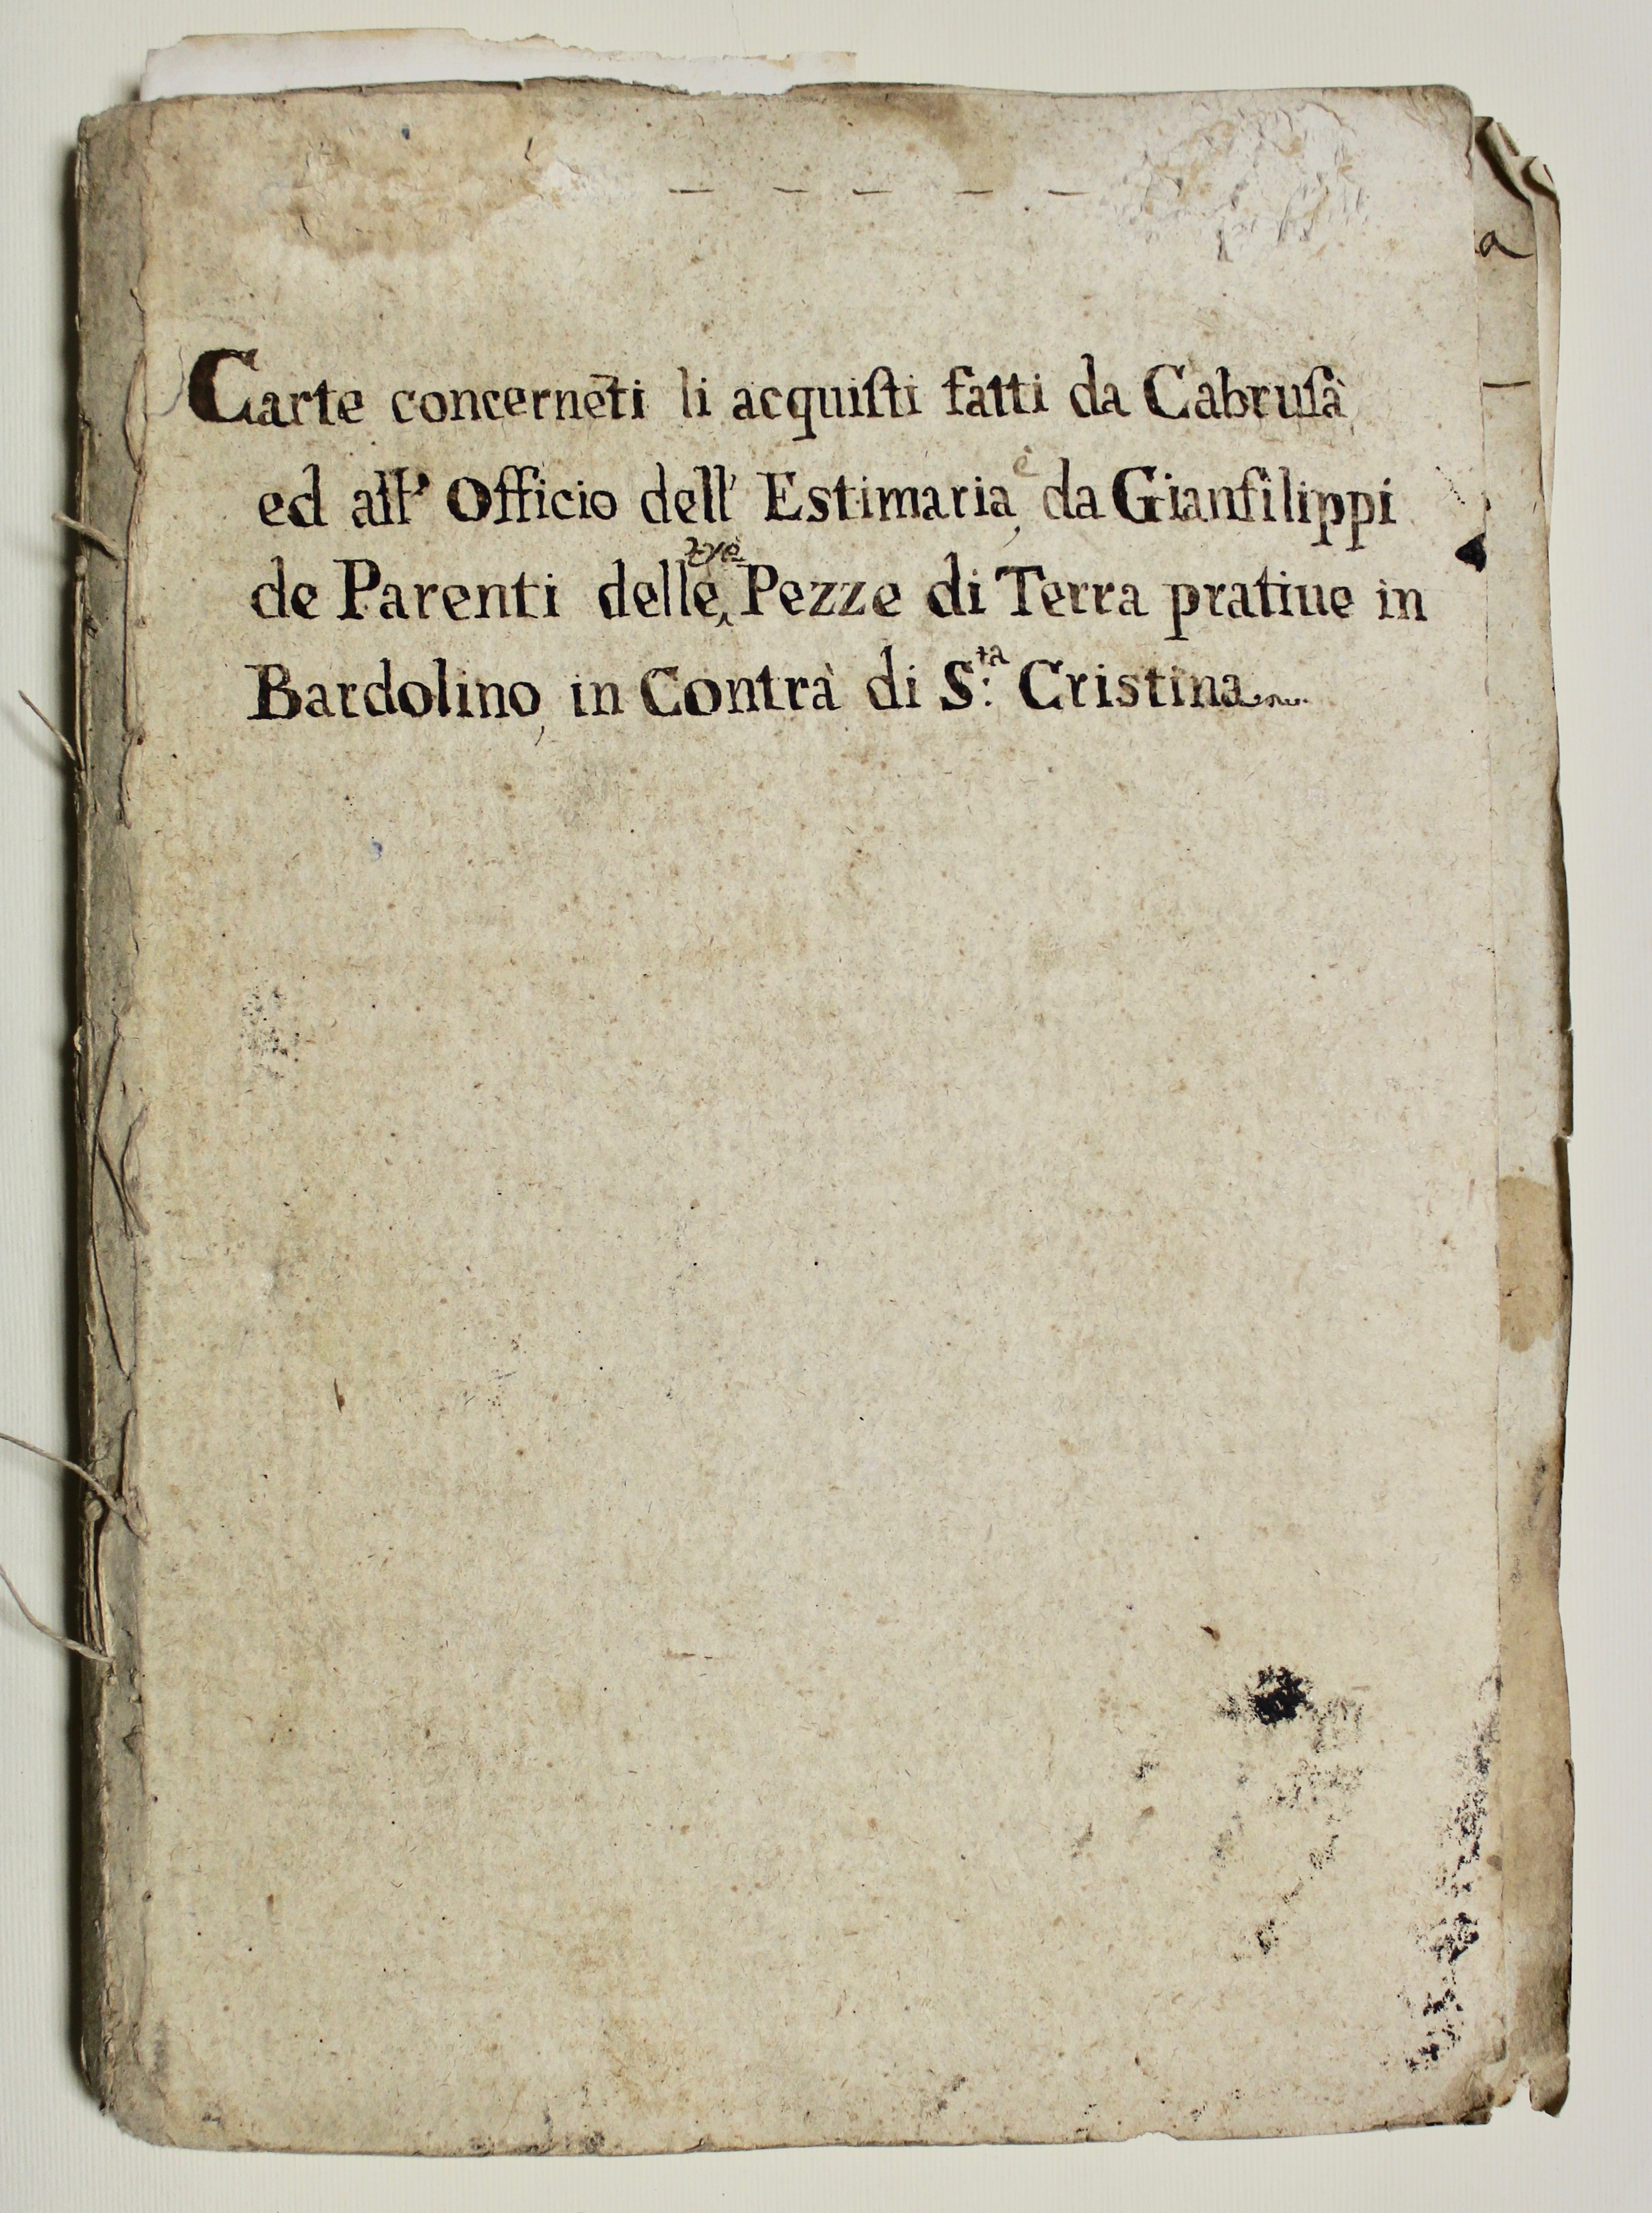 a
Carte concernēti li acquiſti fatti da Cabruſà
ed all' Officio dell' Estimaria, è da Gianfilippi
de Parenti delle Pezze di Terra pratiue in
Bardolino, in Contrà di S:ta Cristina